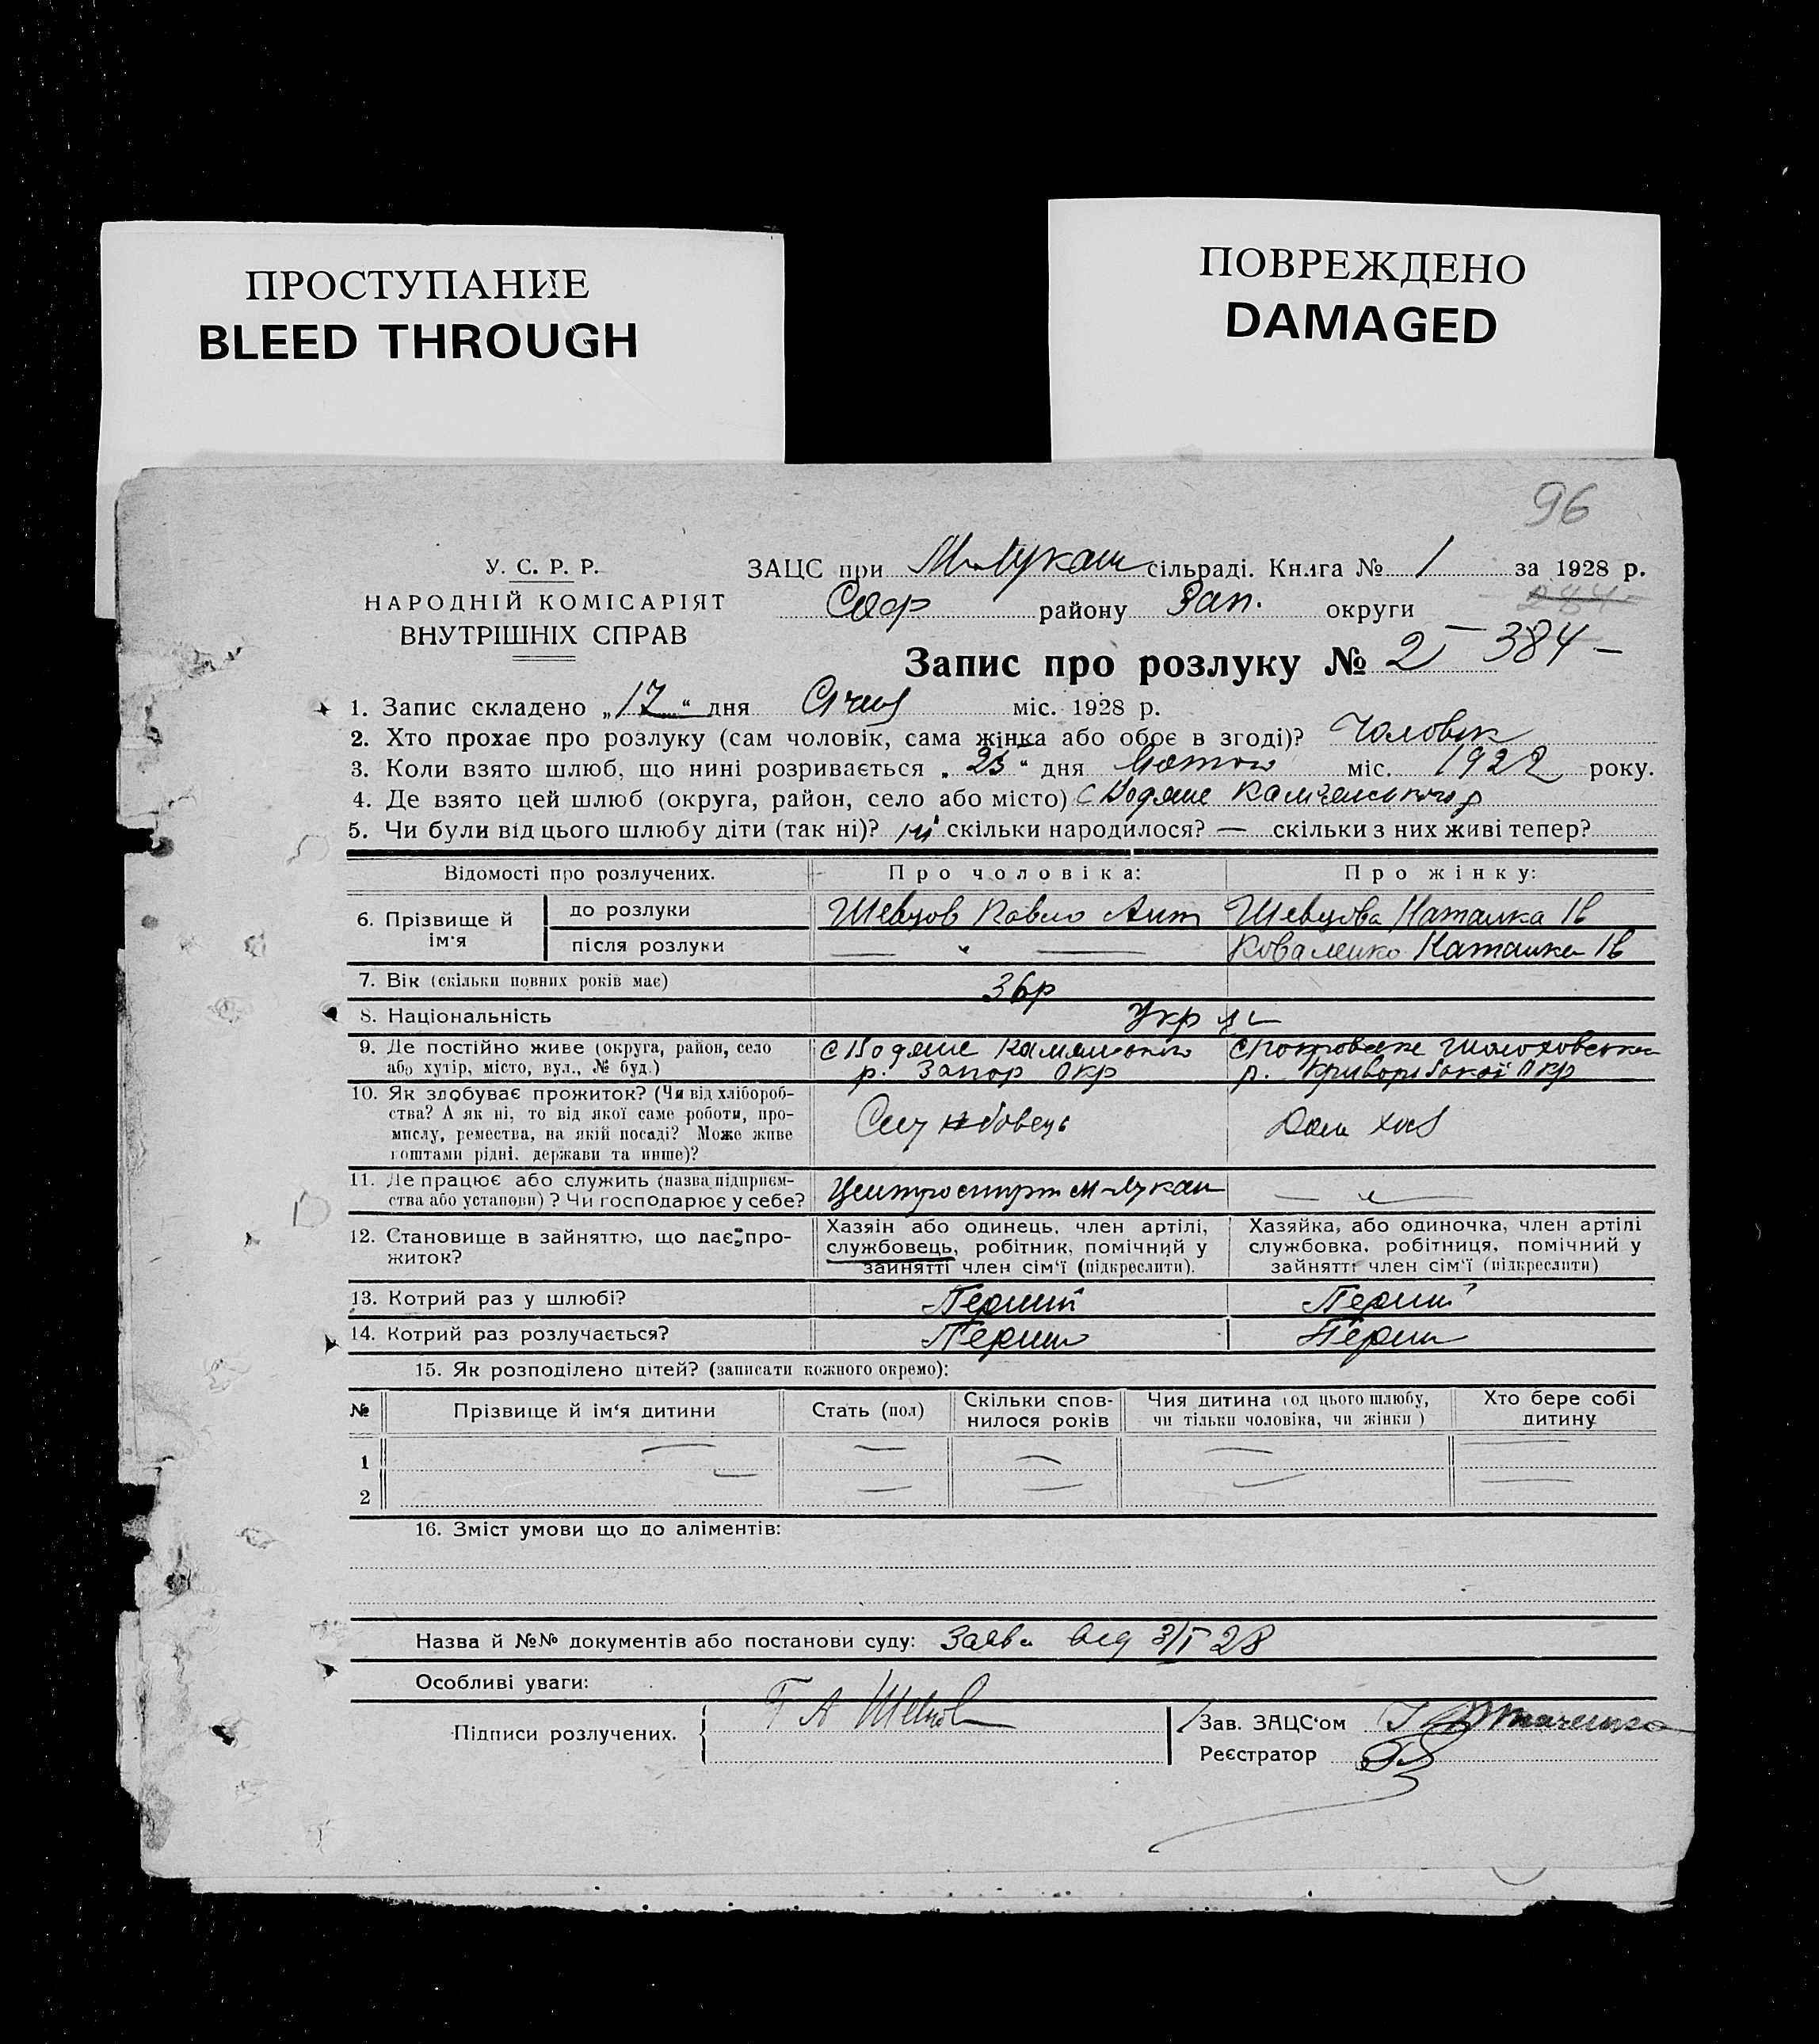 ПРОСТУПАНИЕ
BLEED THROUGH
ПОВРЕЖДЕНО
DAMAGED
96
У. С. Р. Р.
НАРОДНІЙ КОМІСАРІЯТ
ВНУТРІШНІХ СПРАВ
ЗАЦС при М-Лукаш сільраді. Книга № 1 за 1928 р.
Соф району Зап. округи
Запис про розлуку № 2 384 –
1. Запис складено „17“ дня Січня міс. 1928 р.
2. Хто прохає про розлуку (сам чоловік, сама жінка або обоє в згоді)? Чоловік
3. Коли взято шлюб, що нині розривається „25“ дня міс. 1922 року.
4. Де взято цей шлюб (округа, район, село або місто) с Водяне Камянського р
5. Чи були від цього шлюбу діти (так ні)? ні скільки народилося? — скільки з них живі тепер?
Відомості про розлучених. Про чоловіка: Про жінку:
6. Прізвище й ім'я
до розлуки Шевцов Павло Ант Шевцова Наталка Ів
після розлуки — " — Коваленко Наталка Ів
7. Вік (скільки повних років має) 36р
8. Національність Укр
9. Де постійно живе (округа, район, село або хутір, місто, вул., № буд.)
с Водяне Камянського
р. Запор Окр
с Покровське Шолоховськ
р. Криворізької Окр
10. Як здобуває прожиток? (Чи від хлібороб-
ства? А як ні, то від якої саме роботи, про-
мислу, ремества, на якій посаді? Може живе
коштами рідні, держави та инше)?
Службовець Дом хоз
11. Де працює або служить (назва підприєм-
ства або установи)? Чи господарює у себе?
Центроспирт М-Лукаш — " —
12. Становище в зайняттю, що дає про-
житок?
Хазяін або одинець, член артілі,
службовець, робітник, помічний у
зайнятті член сім'ї (підкреслити).
Хазяйка, або одиночка, член артілі
службовка, робітниця, помічний у
зайнятті член сім'ї (підкреслити)
13. Котрий раз у шлюбі? Перший Перший
14. Котрий раз розлучається? Перши Перши
15. Як розподілено дітей? (записати кожного окремо):
№ Прізвище й ім'я дитини Стать (пол) Скільки спов-
нилося років Чия дитина (од цього шлюбу,
чи тільки чоловіка, чи жінки) Хто бере собі
дитину
1
2
16. Зміст умови що до аліментів:
Назва й №№ документів або постанови суду: Заява від 3/I 28
Особливі уваги:
Підписи розлучених. П А Шевцов
Зав. ЗАЦС'ом
Реєстратор